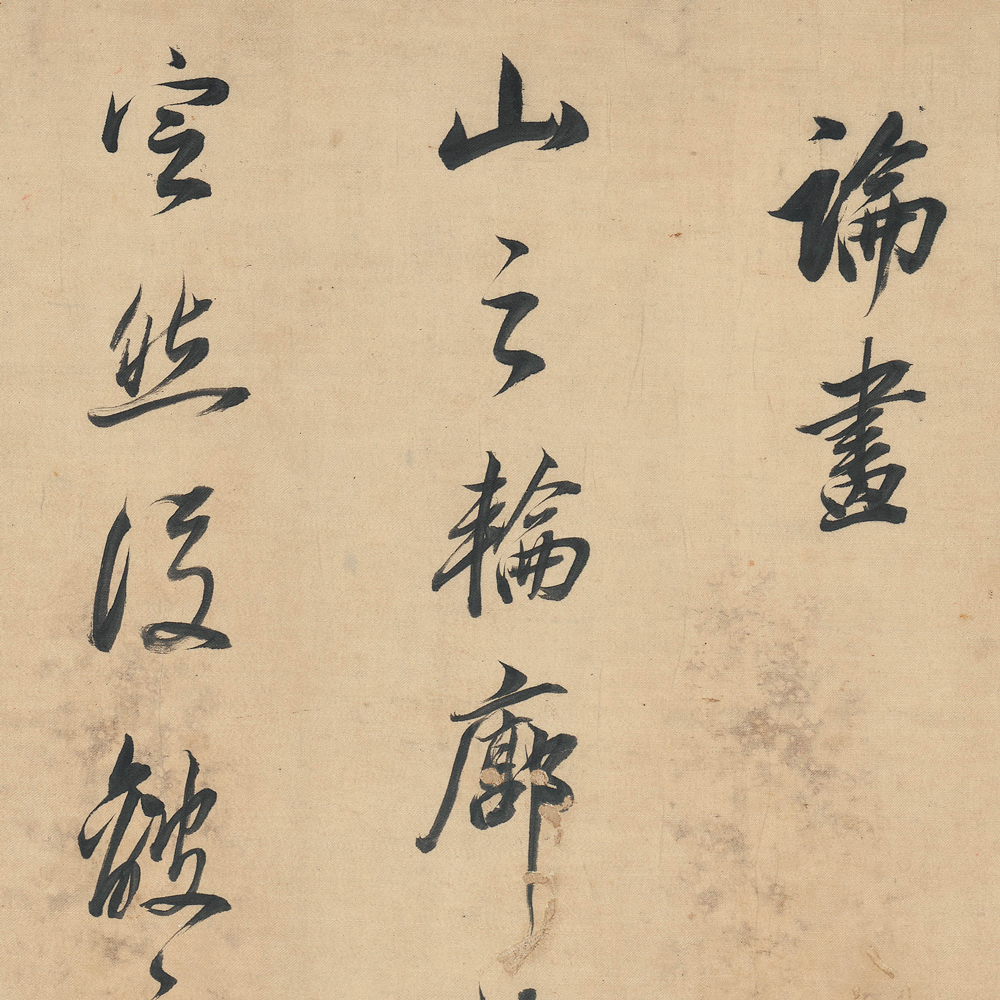 論畫
山之輪廓
定然後皴之